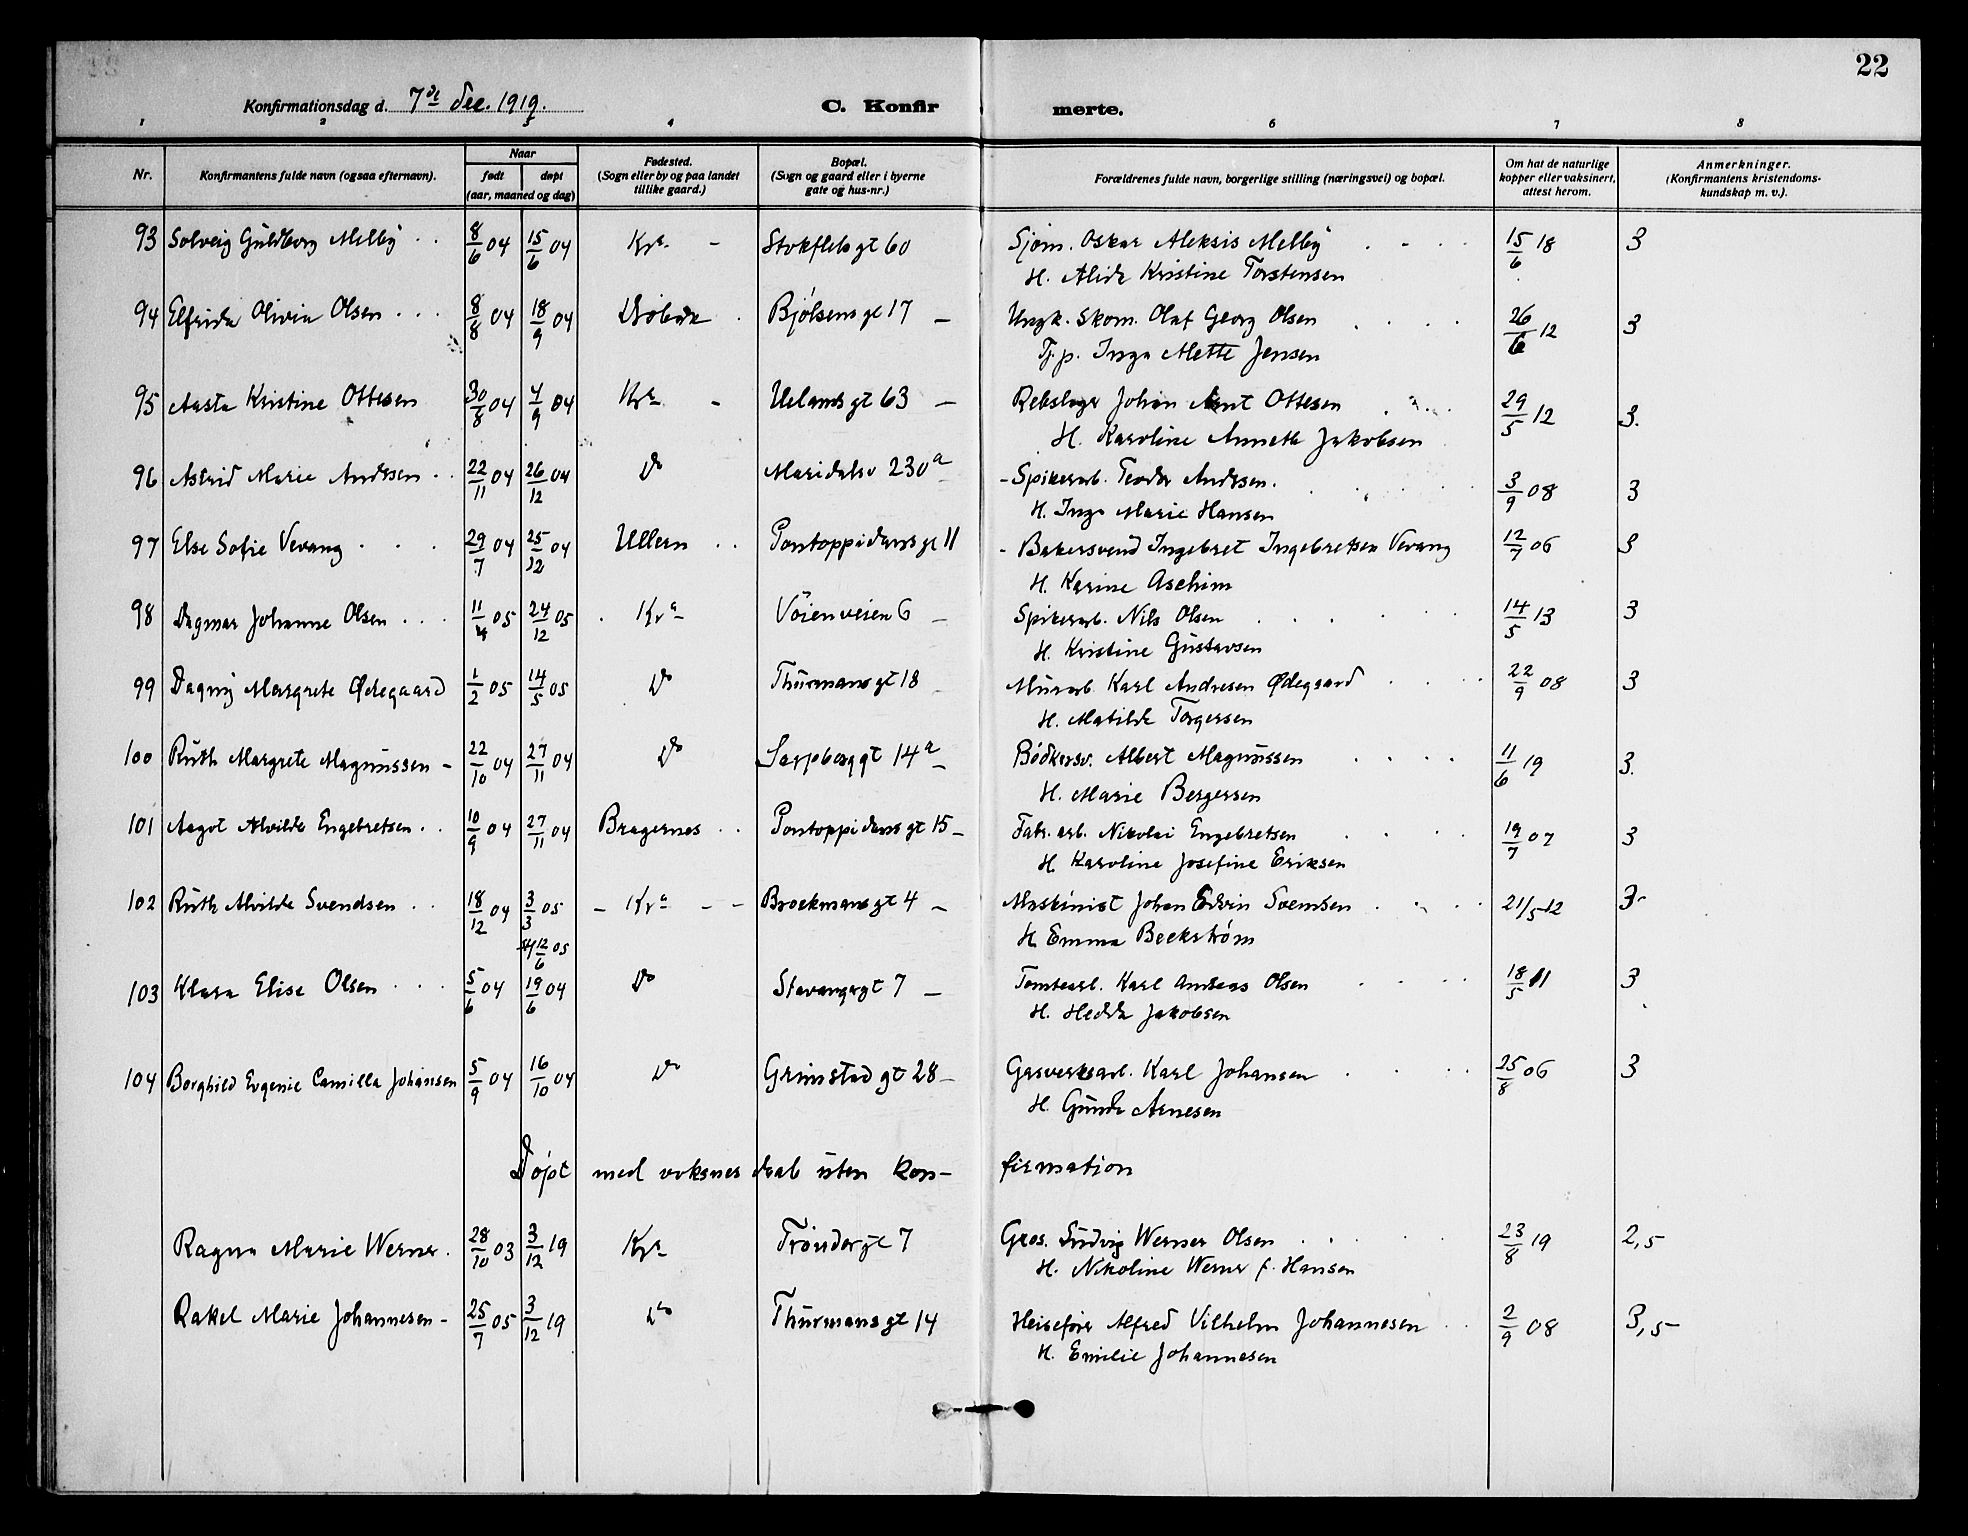 22
Konfirmationsdag d. 7de Dec. 1919.
C. Konfirmerte.
1 2 3 4 6 7 8
Nr. Konfirmantens fulde navn (ogsaa efternavn). Naar født døpt (aar, maaned og dag) Fødested. (Sogn eller by og paa landet tillike gaard.) Bopæl. (Sogn og gaard eller i byerne gate og hus-nr.) Forældrenes fulde navn, borgerlige stilling (næringsvei) og bopæl. Om hat de naturlige kopper eller vaksinert, attest herom. Anmerkninger. (Konfirmantens kristendomskundskap m. v.).
93 Solveig Guldborg Melby 8/6 04 15/6 04 Kra - Stokflets gt 60 Sjøm. Oskar Aleksis Melby 15/6 18 3
H. Alida Kristine Torstensen
94 Elfrida Olivia Olsen 8/8 04 18/9 04 Drøbak Bjølsens gt 17 - Ungk. Skom. Olaf Georg Olsen 26/6 12 3
Tj.p. Inga Mette Jensen
95 Aasta Kristine Ottesen 30/8 04 4/9 04 Kra - Uelands gt 63 - Rebslager Johan Arnt Ottesen 29/5 12 3.
H. Karoline Annette Jakobsen
96 Astrid Marie Andersen 22/11 04 26/12 04 Do Maridalsv 230a - Spikerarb. Teodor Andersen. 3/9 08 3
H. Inga Marie Hansen
97 Else Sofie Vevang 29/7 04 25/12 04 Ullern Pontoppidans gt 11 - Bakersvend Ingebret Ingebretsen Vevang 12/7 06 3
H. Karine Aschim
98 Dagmar Johanne Olsen 11/4 05 24/12 05 Kra Vøienveien 6 - Spikerarb. Nils Olsen 14/5 13 3
H. Kristine Gustavsen
99 Dagny Margrete Ødegaard 1/2 05 14/5 05 Do Thurmans gt 18 - Murarb. Karl Andresen Ødegaard 22/9 08 3
H. Matilde Torgersen
100 Ruth Margrete Magnussen - 22/10 04 27/11 04 Do Sarpborggt 14a - Bødkersv. Albert Magnussen 11/6 19 3.
H. Marie Bergersen
101 Aagot Alvilde Engebretsen 10/9 04 27/11 04 Bragernes Pontoppidans gt 15 - Fabr. arb. Nikolai Engebretsen 19/7 07 3
H. Karoline Josefine Eriksen
102 Ruth Alvilde Svendsen 18/12 04 3/3 05 - Kra - - Brockmans gt 4 - Maskinist Johan Edvin Svendsen 21/5-12 3-
12/6 05 H. Emma Beckstrøm
103 Klara Elise Olsen 5/6 04 19/6 04 Do Stavangergt 7 - Tomtearb. Karl Andreas Olsen 18/5 11 3
H. Hedda Jakobsen
104 Borghild Evgenie Camilla Johansen 5/9 04 16/10 04 Do Grimstad gt 28 - Gasverksarb. Karl Johansen 25/8 06 3
H. Gunda Arnesen
Døpt med voksnes daab uten konfirmation
Ragna Marie Werner. 28/10 03 3/12 19 Kra Trøndergt 7 Gros. Ludvig Werner Olsen 23/8 19 2,5
H. Nikoline Werner f. Hansen
Rakel Marie Johannesen - 25/7 05 3/12 19 Do Thurmans gt 14 Heisefører Alfred Vilhelm Johannesen 2/9 08 3,5-
H. Emilie Johannesen